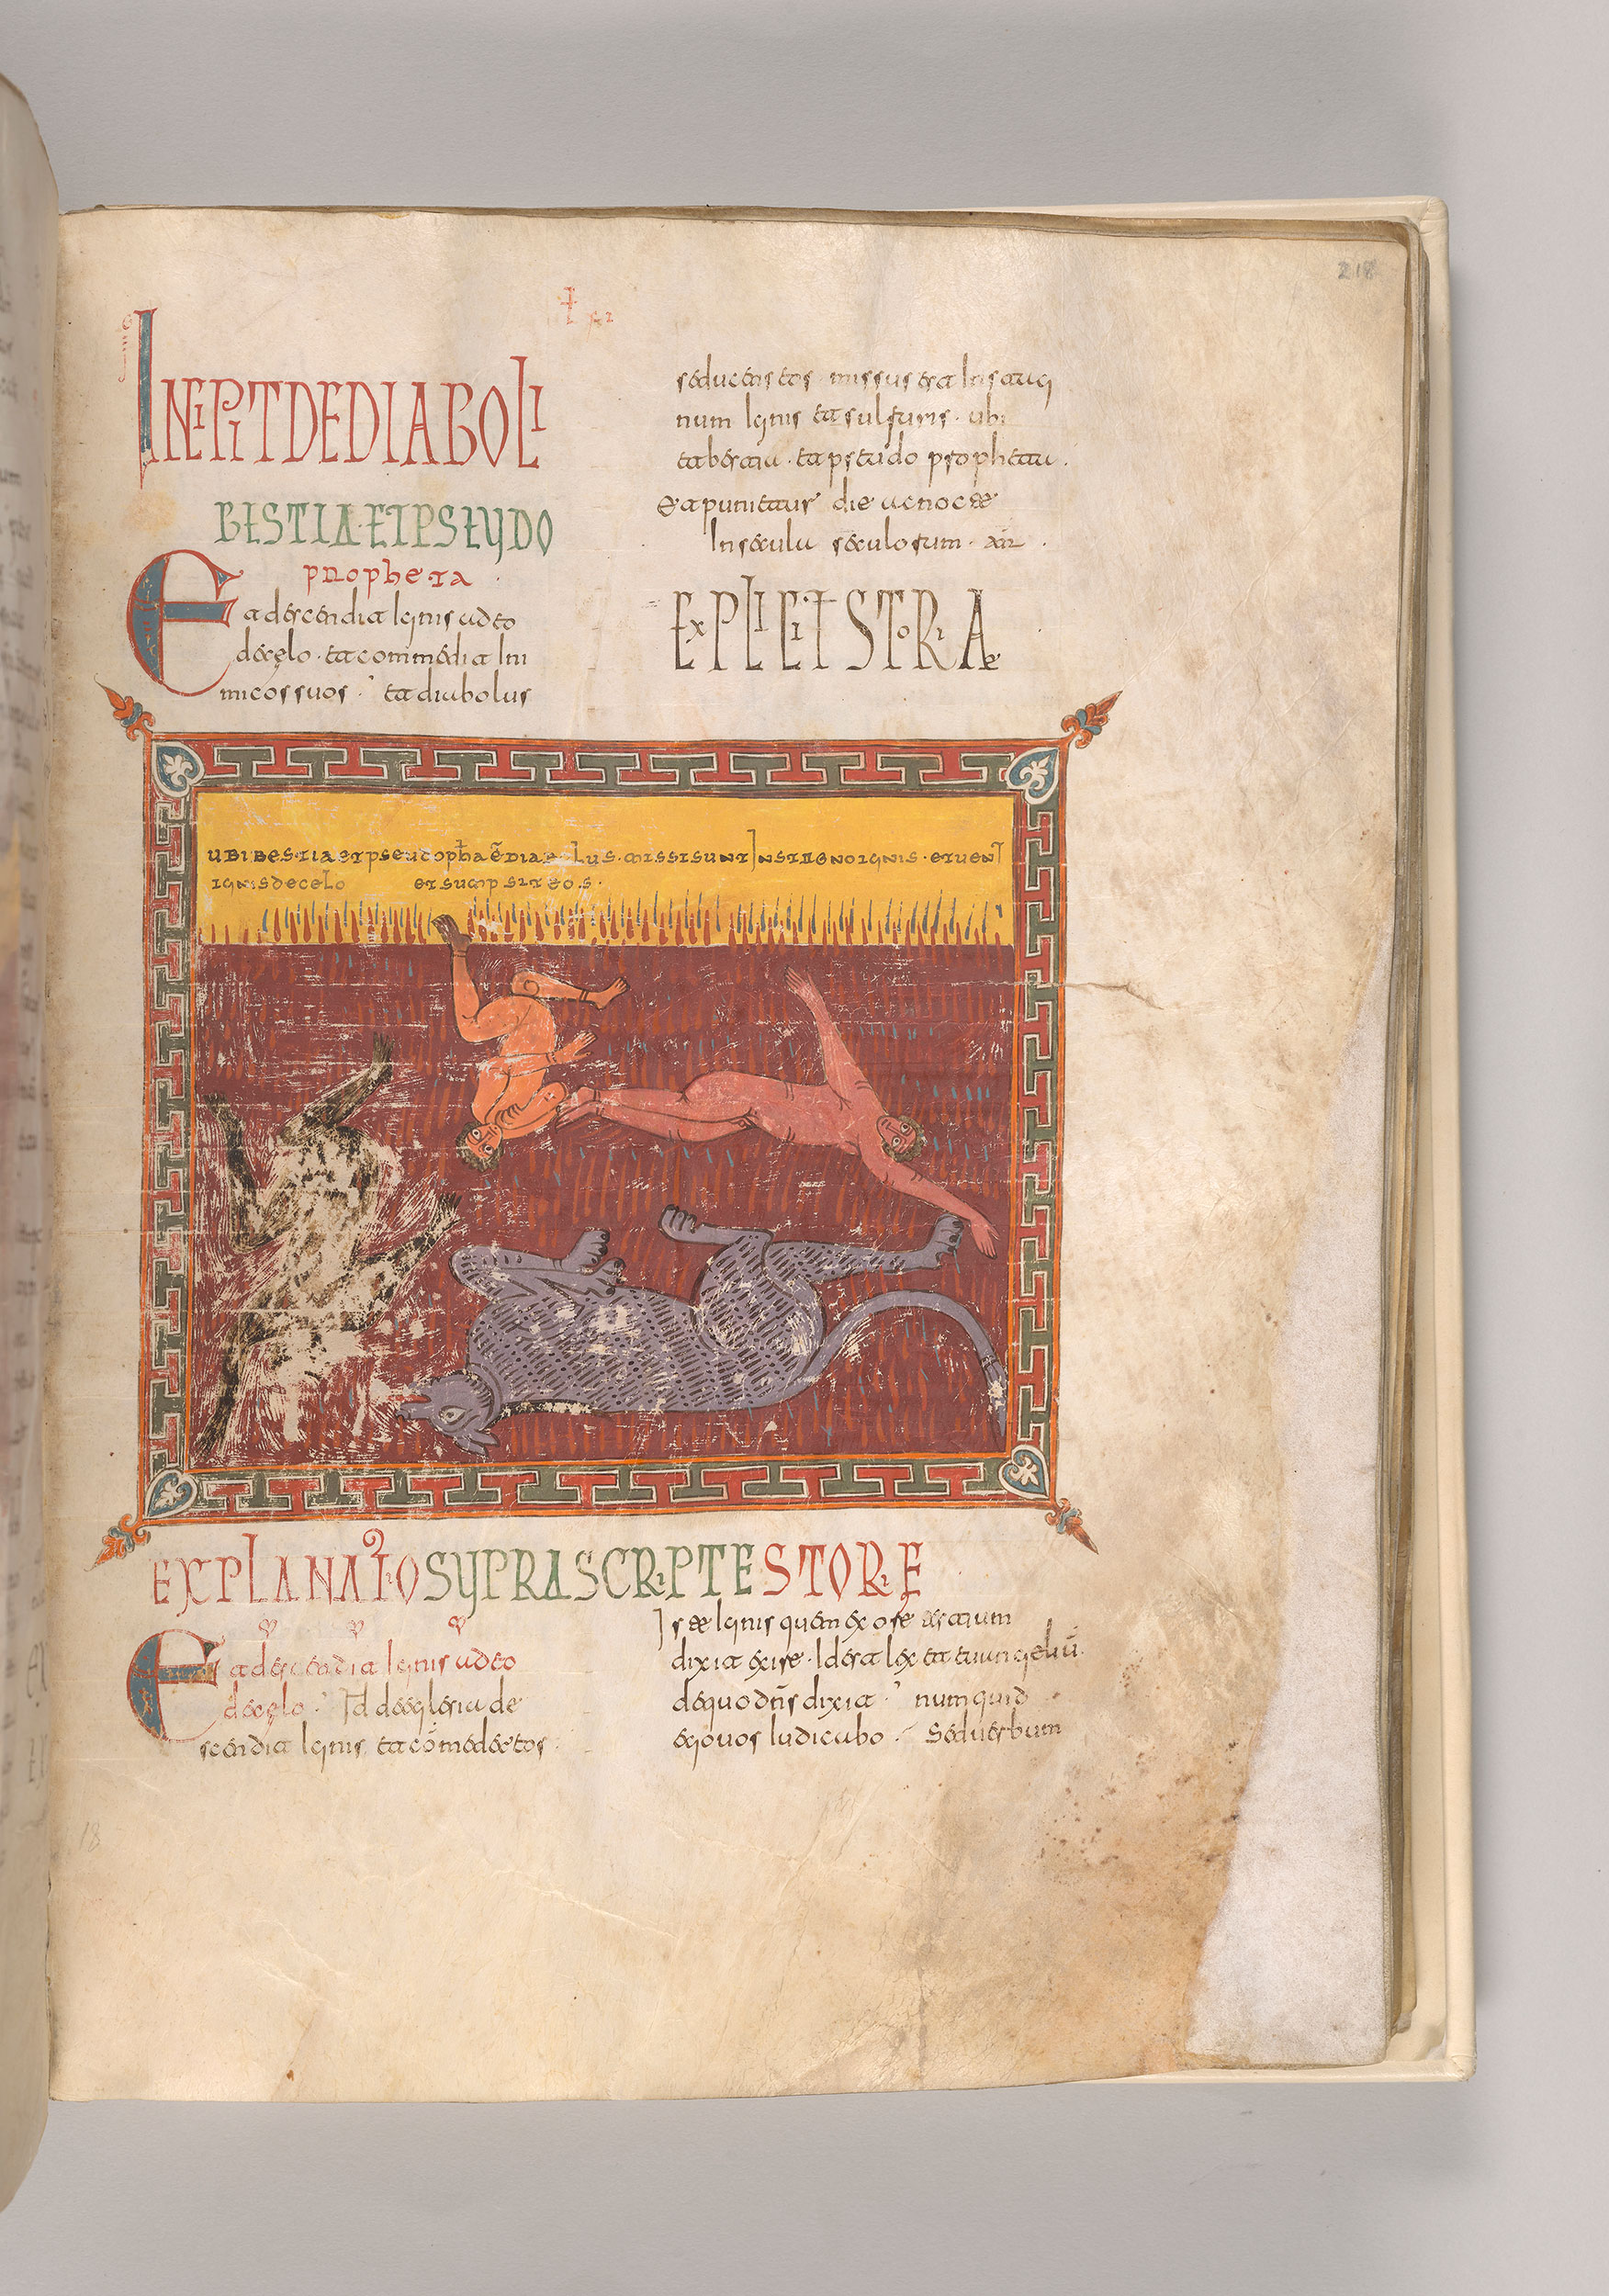 218
INCIPIT DE DIABOLI
BESTIA ET PSEUDO
propheta
Et descendit ignis a deo
de celo · et commedit ini
micos suos · et diabolus
seducens eos missus est in stag
num ignis et sulfuris · ubi
et bestia · et pseudo propheta ·
Et punientur die ac nocte
In secula seculorum ·
EXPLICIT STORIAe
ubi bestia et pseudopha et diabolus · missi sunt In stagno ignis · et uenit
ignis de celo et sumpsit eos ·
EXPLANATIO SUPRASCRIPTE STORIE
Et descendit ignis a deo
de celo · Id de eclesia de
scendit ignis et comedet eos ·
ignis quem ex ore
dixit exire · Id est lex et euangeliū ·
de quo dn̄s dixit · numquid
ego uos iudicabo · Sed uerbum
18